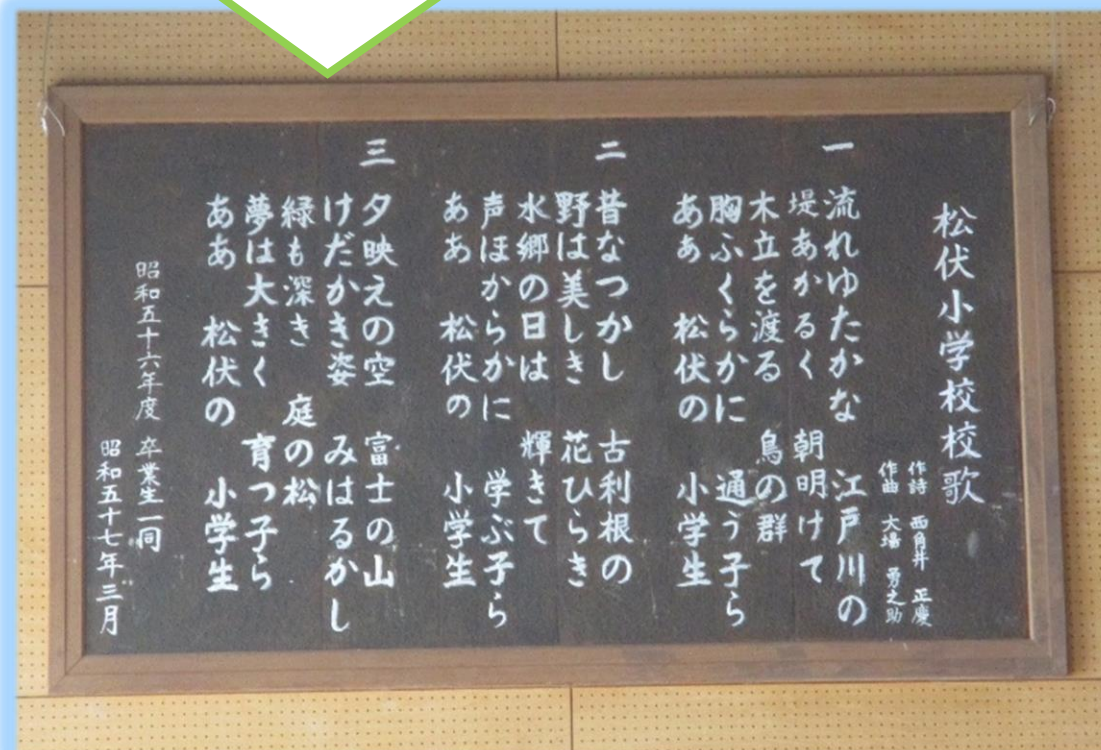 松伏小学校校歌
作詩 西角井 正慶
作曲 大場 勇之助
一 流れゆたかな 江戸川の
堤あかるく 朝明けて
木立を渡る 鳥の群
胸ふくらかに 通う子ら
あぁ 松伏の 小学生
二 昔なつかし 古利根の
野は美しき 花ひらき
水郷の日は 輝きて
声ほからかに 学ぶ子ら
ああ 松伏の 小学生
三 夕映えの空 富士の山
けだかき姿 みはるかし
緑も深き 庭の松
夢は大きく 育つ子ら
ああ 松伏の 小学生
昭和五十六年度 卒業生一同
昭和五十七年三月